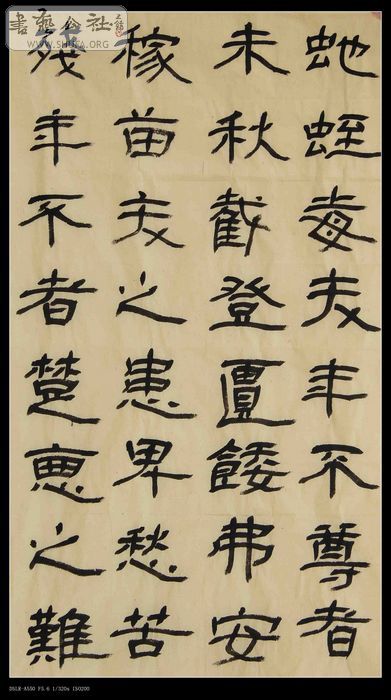 虵蛭毒夭年不尊者
未秋截登匱餧弗安
稼苗夭之患卑愁苦
殘年不者楚惡之難
書藝公社
WWW.SHUFA.ORG
DSLR-A550 F5.6 1/320s ISO200